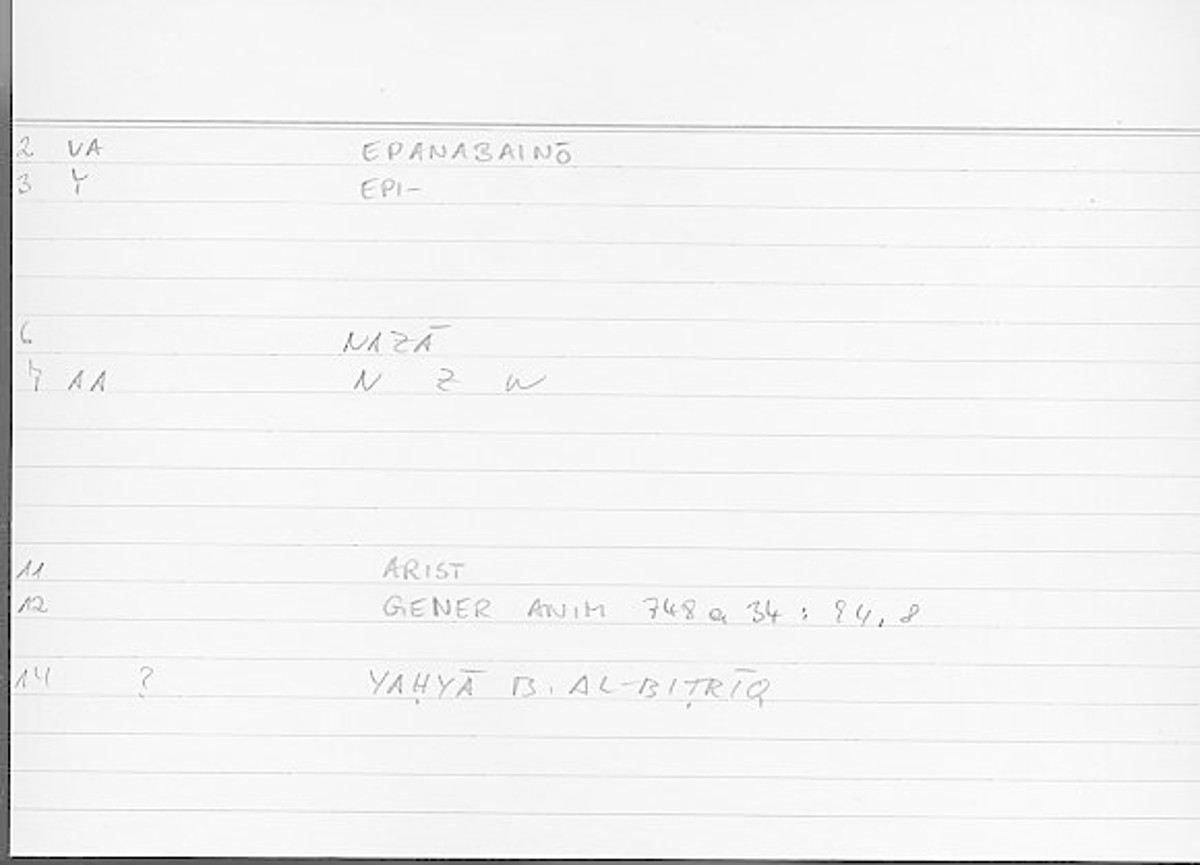 2 VA EPANABAINŌ
3 Y EPI-
6 NAZĀ
7 AA N Z W
11 ARIST
12 GENER ANIM 748 a 34 : 94, 8
14 ? YAḤYĀ B. AL-BIṬRĪQ